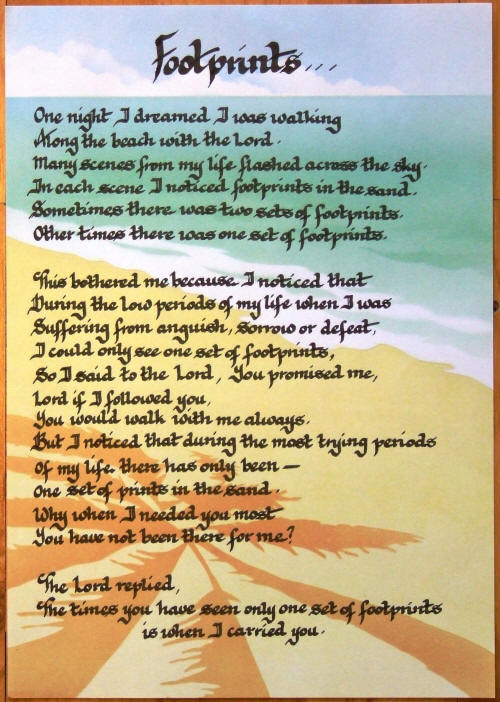 Footprints...
One night I dreamed I was walking
Along the beach with the Lord.
Many scenes from my life flashed across the sky.
In each scene I noticed footprints in the sand.
Sometimes there was two sets of footprints.
Other times there was one set of footprints.
This bothered me because I noticed that
During the low periods of my life when I was
Suffering from anguish, sorrow or defeat,
I could only see one set of footprints,
So I said to the Lord, You promised me,
Lord if I followed you,
You would walk with me always.
But I noticed that during the most trying periods
of my life there has only been —
one set of prints in the sand.
Why when I needed you most
You have not been there for me?
The Lord replied,
The times you have seen only one set of footprints
is when I carried you.